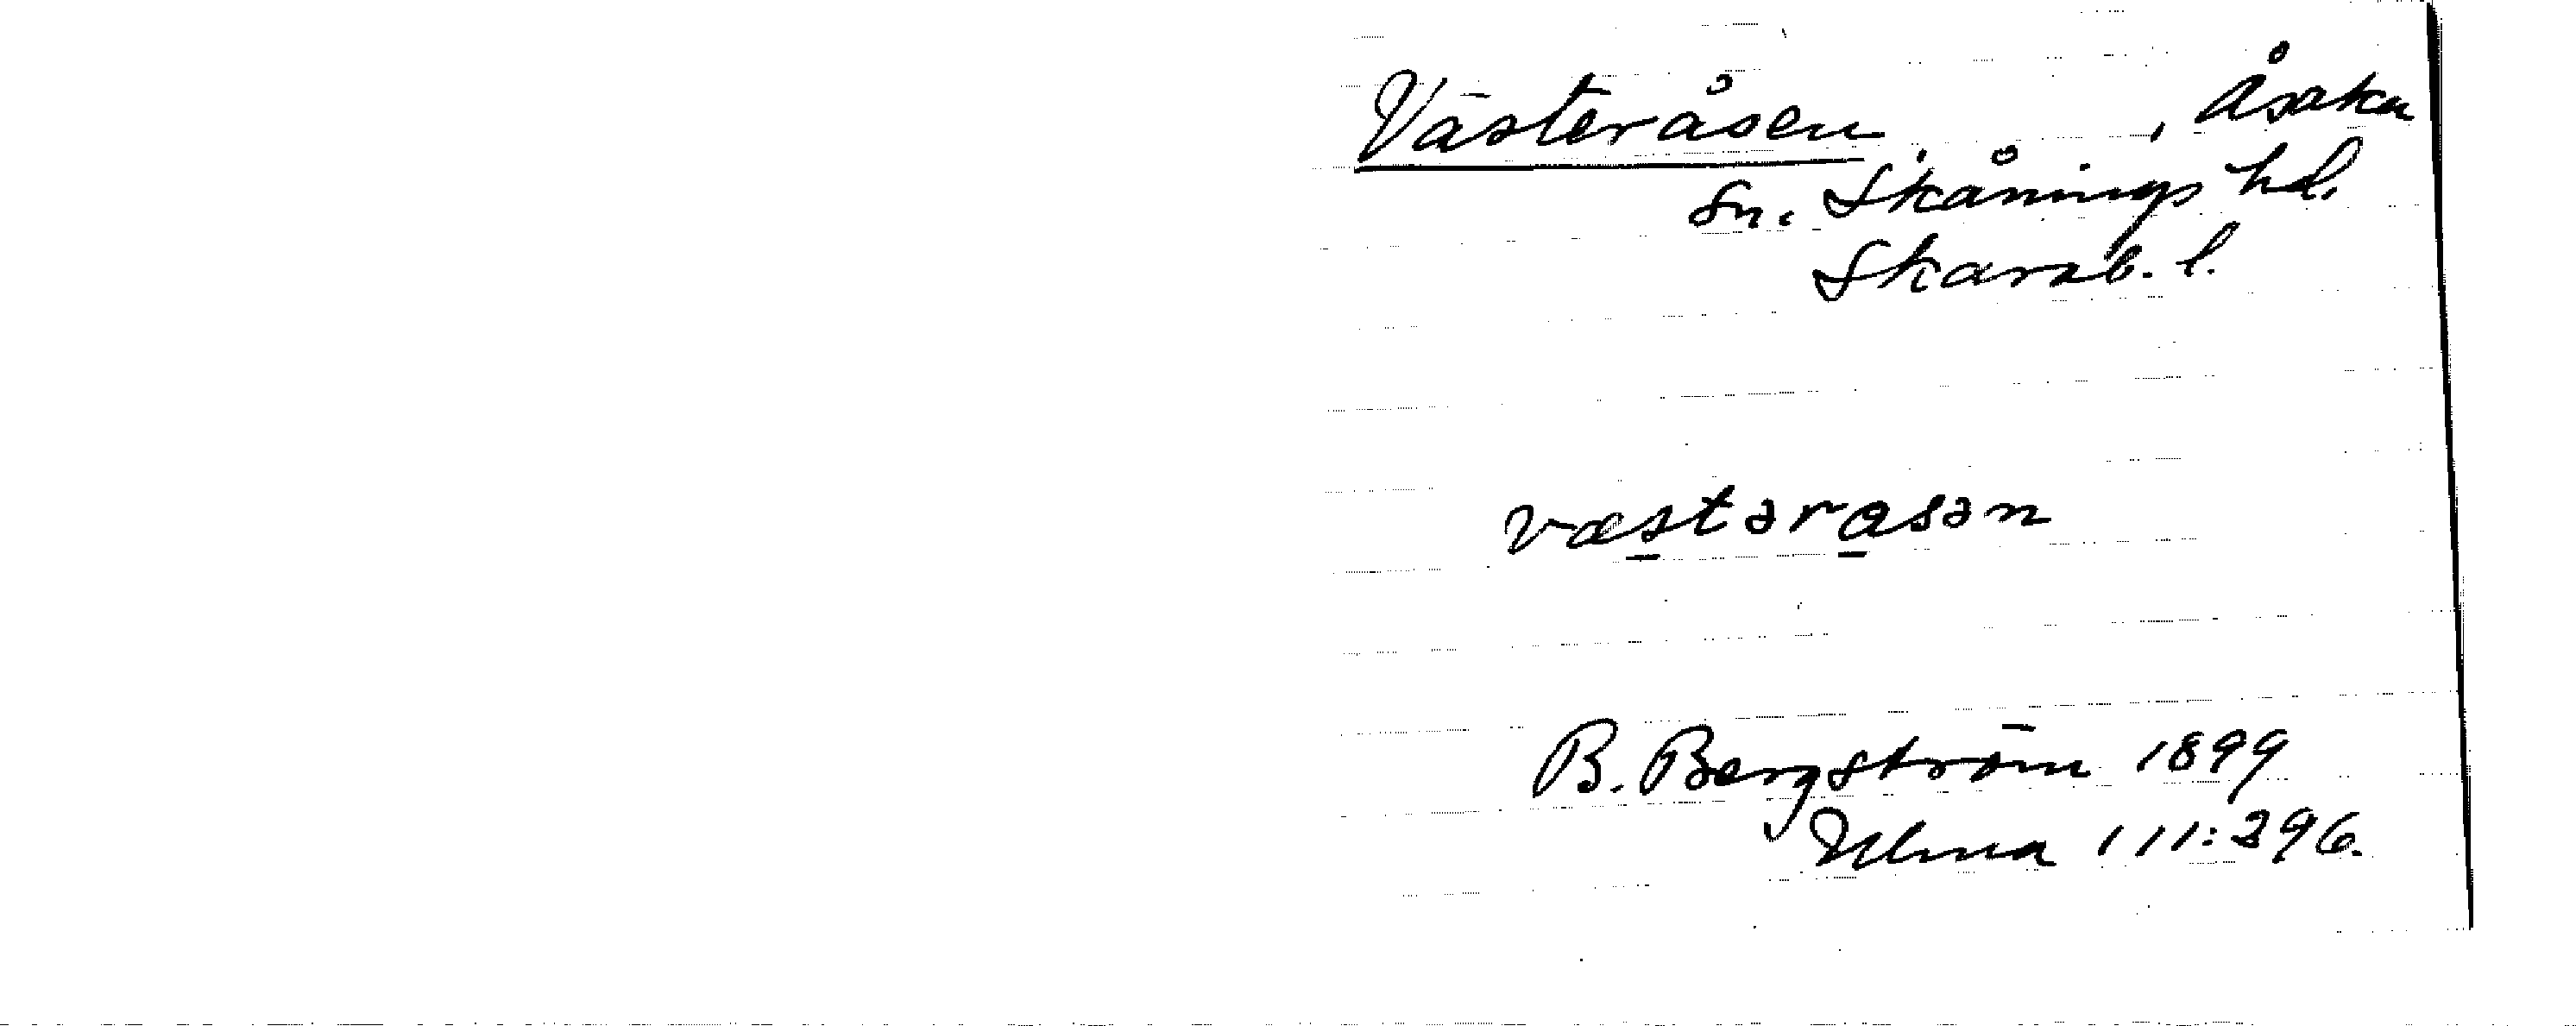 Västeråsen, , Åsaka
sn. Skånings hd.
Skarab. l.
væstərasən
B. Bergström 1899
Ulma 111:396.